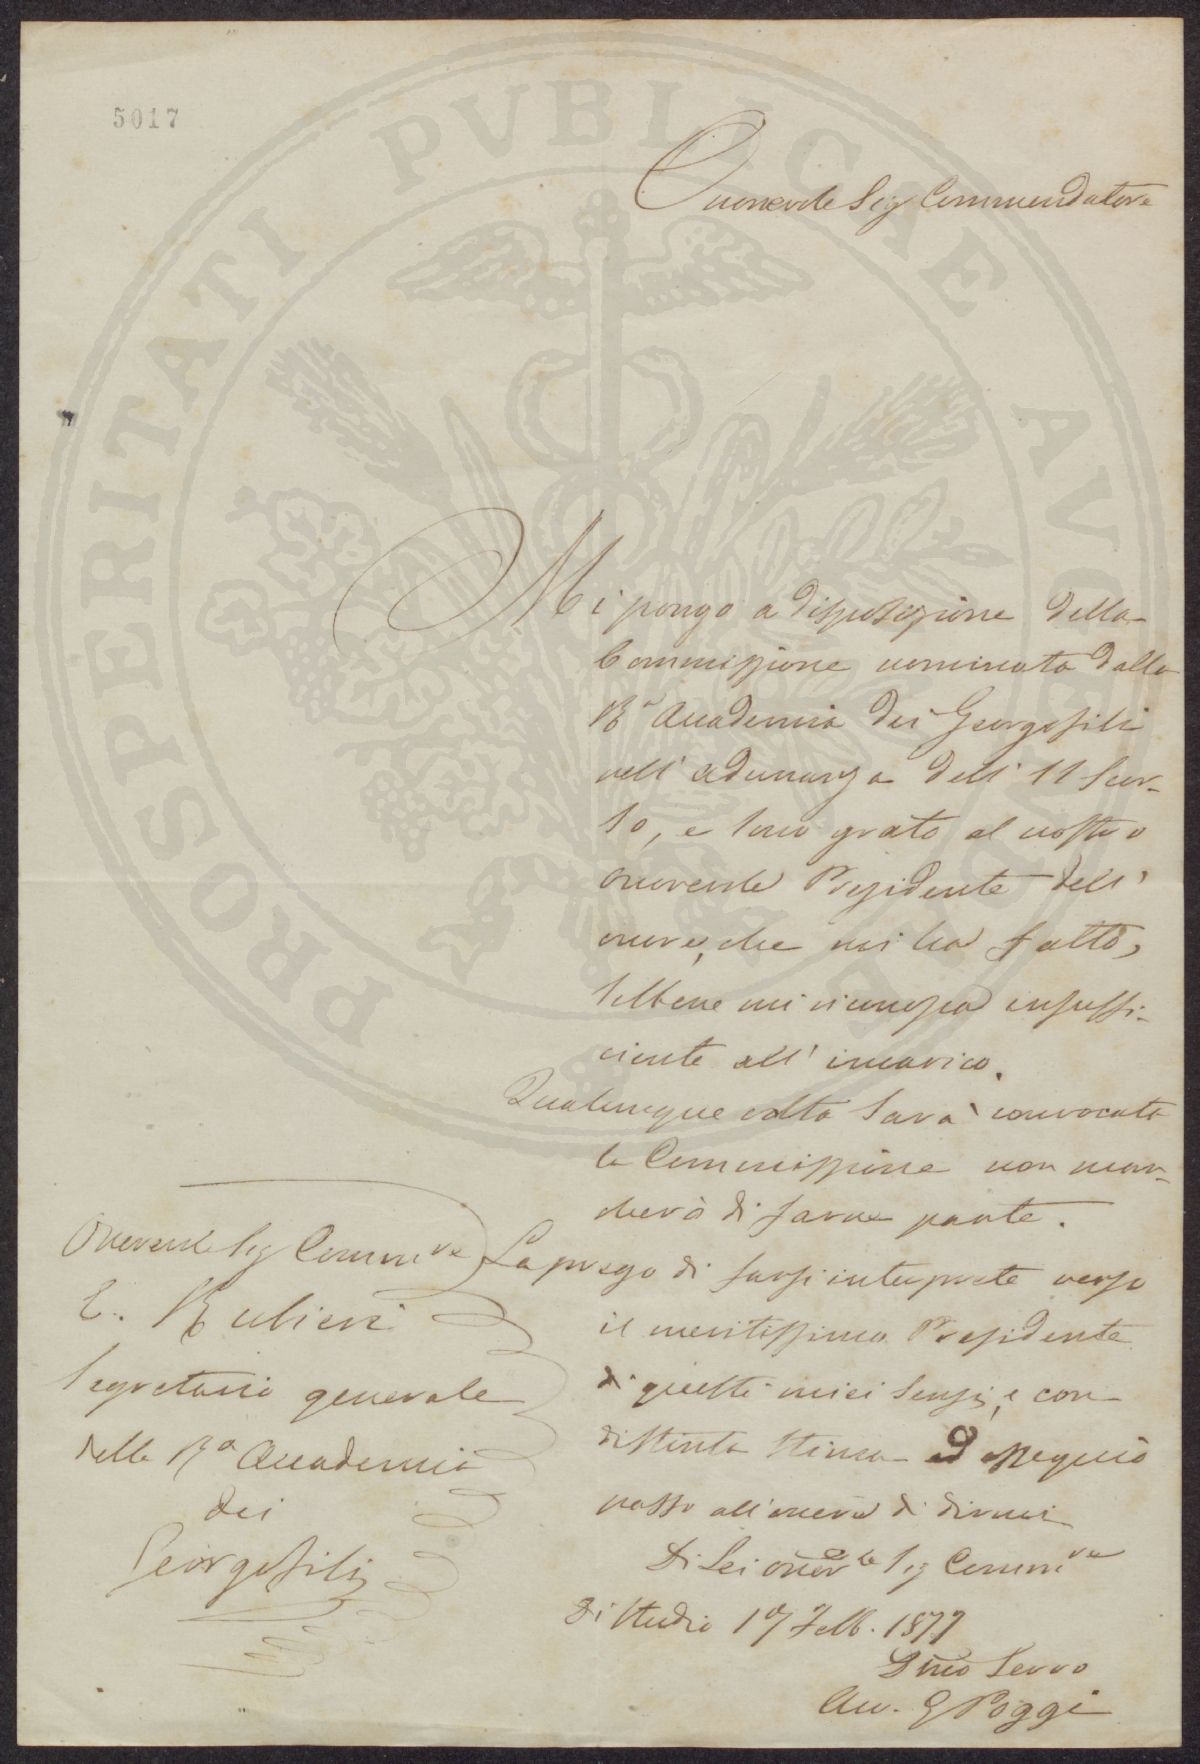 5017
PROSPERITATI PVBLICAE AVGENDAE
Onorevole Sig Commendatore
Mi pongo a disposizione della
Commissione nominata dalla
Rª Accademia dei Georgofili
nell' adunanza dell' 11 Scor-
so, e sono grato al nostro
onorevole Presidente dell'
onore, che mi ha fatto,
sebbene mi riconosca insuffi-
ciente all' incarico.
Qualunque volta sarà convocata
la Commissione non man-
cherò di farne parte.
La prego di farsi interprete verso
il meritissimo Presidente
di questi miei sensi, e con
distinta stima ed ossequio
passo all'onore di dirmi
Di Lei onorle Sig Commre
Di Studio 17 Febb. 1877
Dmo Servo
Avv. E Poggi
Onorevole Sig Commre
E. Rubieri
Segretario generale
della Rª Accademia
dei
Georgofili